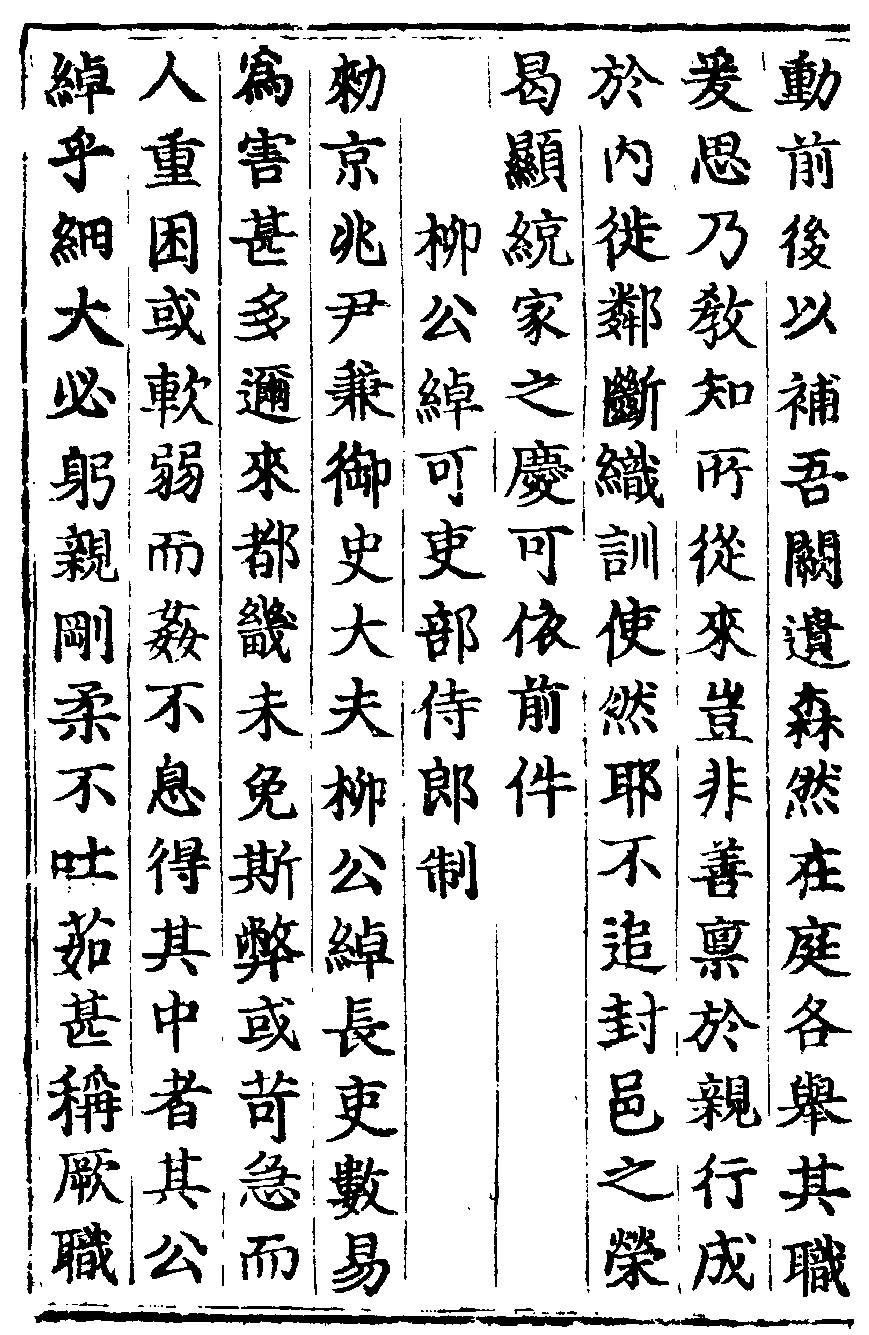 動前後以補吾闕遺森然在庭各舉其職
爰思乃教知所從來豈非善稟於親行成
於内徙鄰斷織訓使然耶不追封邑之榮
曷顯統家之慶可依前件
柳公綽可吏部侍郎制
勑京兆尹兼御史大夫柳公綽長吏數易
為害甚多邇來都畿未免斯弊或苛急而
人重困或軟弱而姦不息得其中者其公
綽乎細大必躬親剛柔不吐茹甚稱厥職